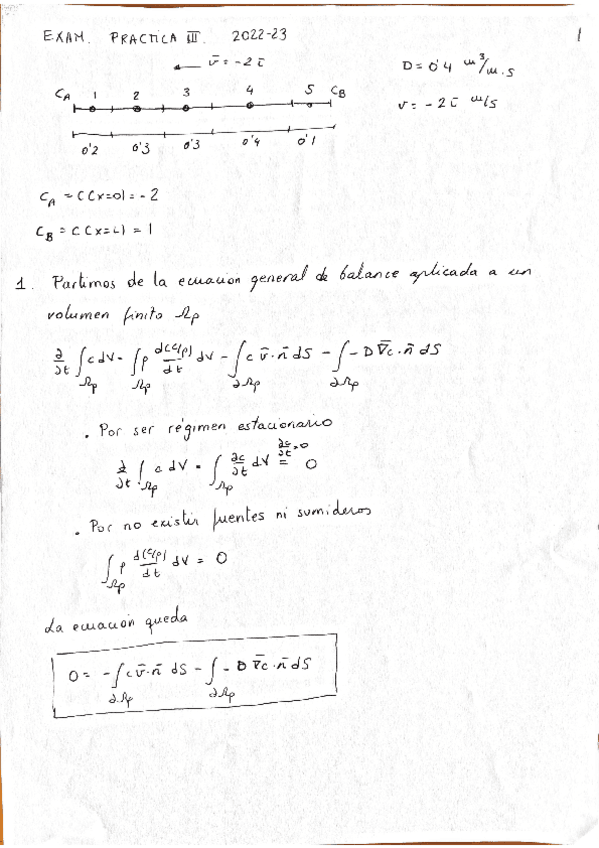 EXAM. PRACTICA III. 2022-23
1
v̄ = -2 ī
D = 0'4 m³/m.s
v = -2 ī m/s
C_A 1 2 3 4 5 C_B
0'2 0'3 0'3 0'4 0'1
C_A = C(x=0) = -2
C_B = C(x=L) = 1
1. Partimos de la ecuacion general de balance aplicada a un
volumen finito Ωp
∂/∂t ∫_Ωp c dV = ∫_Ωp ρ d(c/ρ)/dt dV - ∫_∂Ωp c v̄·n̄ dS - ∫_∂Ωp -D ∇̄c·n̄ dS
. Por ser régimen estacionario
∂/∂t ∫_Ωp c dV = ∫_Ωp ∂c/∂t dV = 0
∂c/∂t = 0
. Por no existir fuentes ni sumideros
∫_Ωp ρ d(c/ρ)/dt dV = 0
La ecuación queda
0 = -∫_∂Ωp c v̄·n̄ dS - ∫_∂Ωp -D ∇̄c·n̄ dS